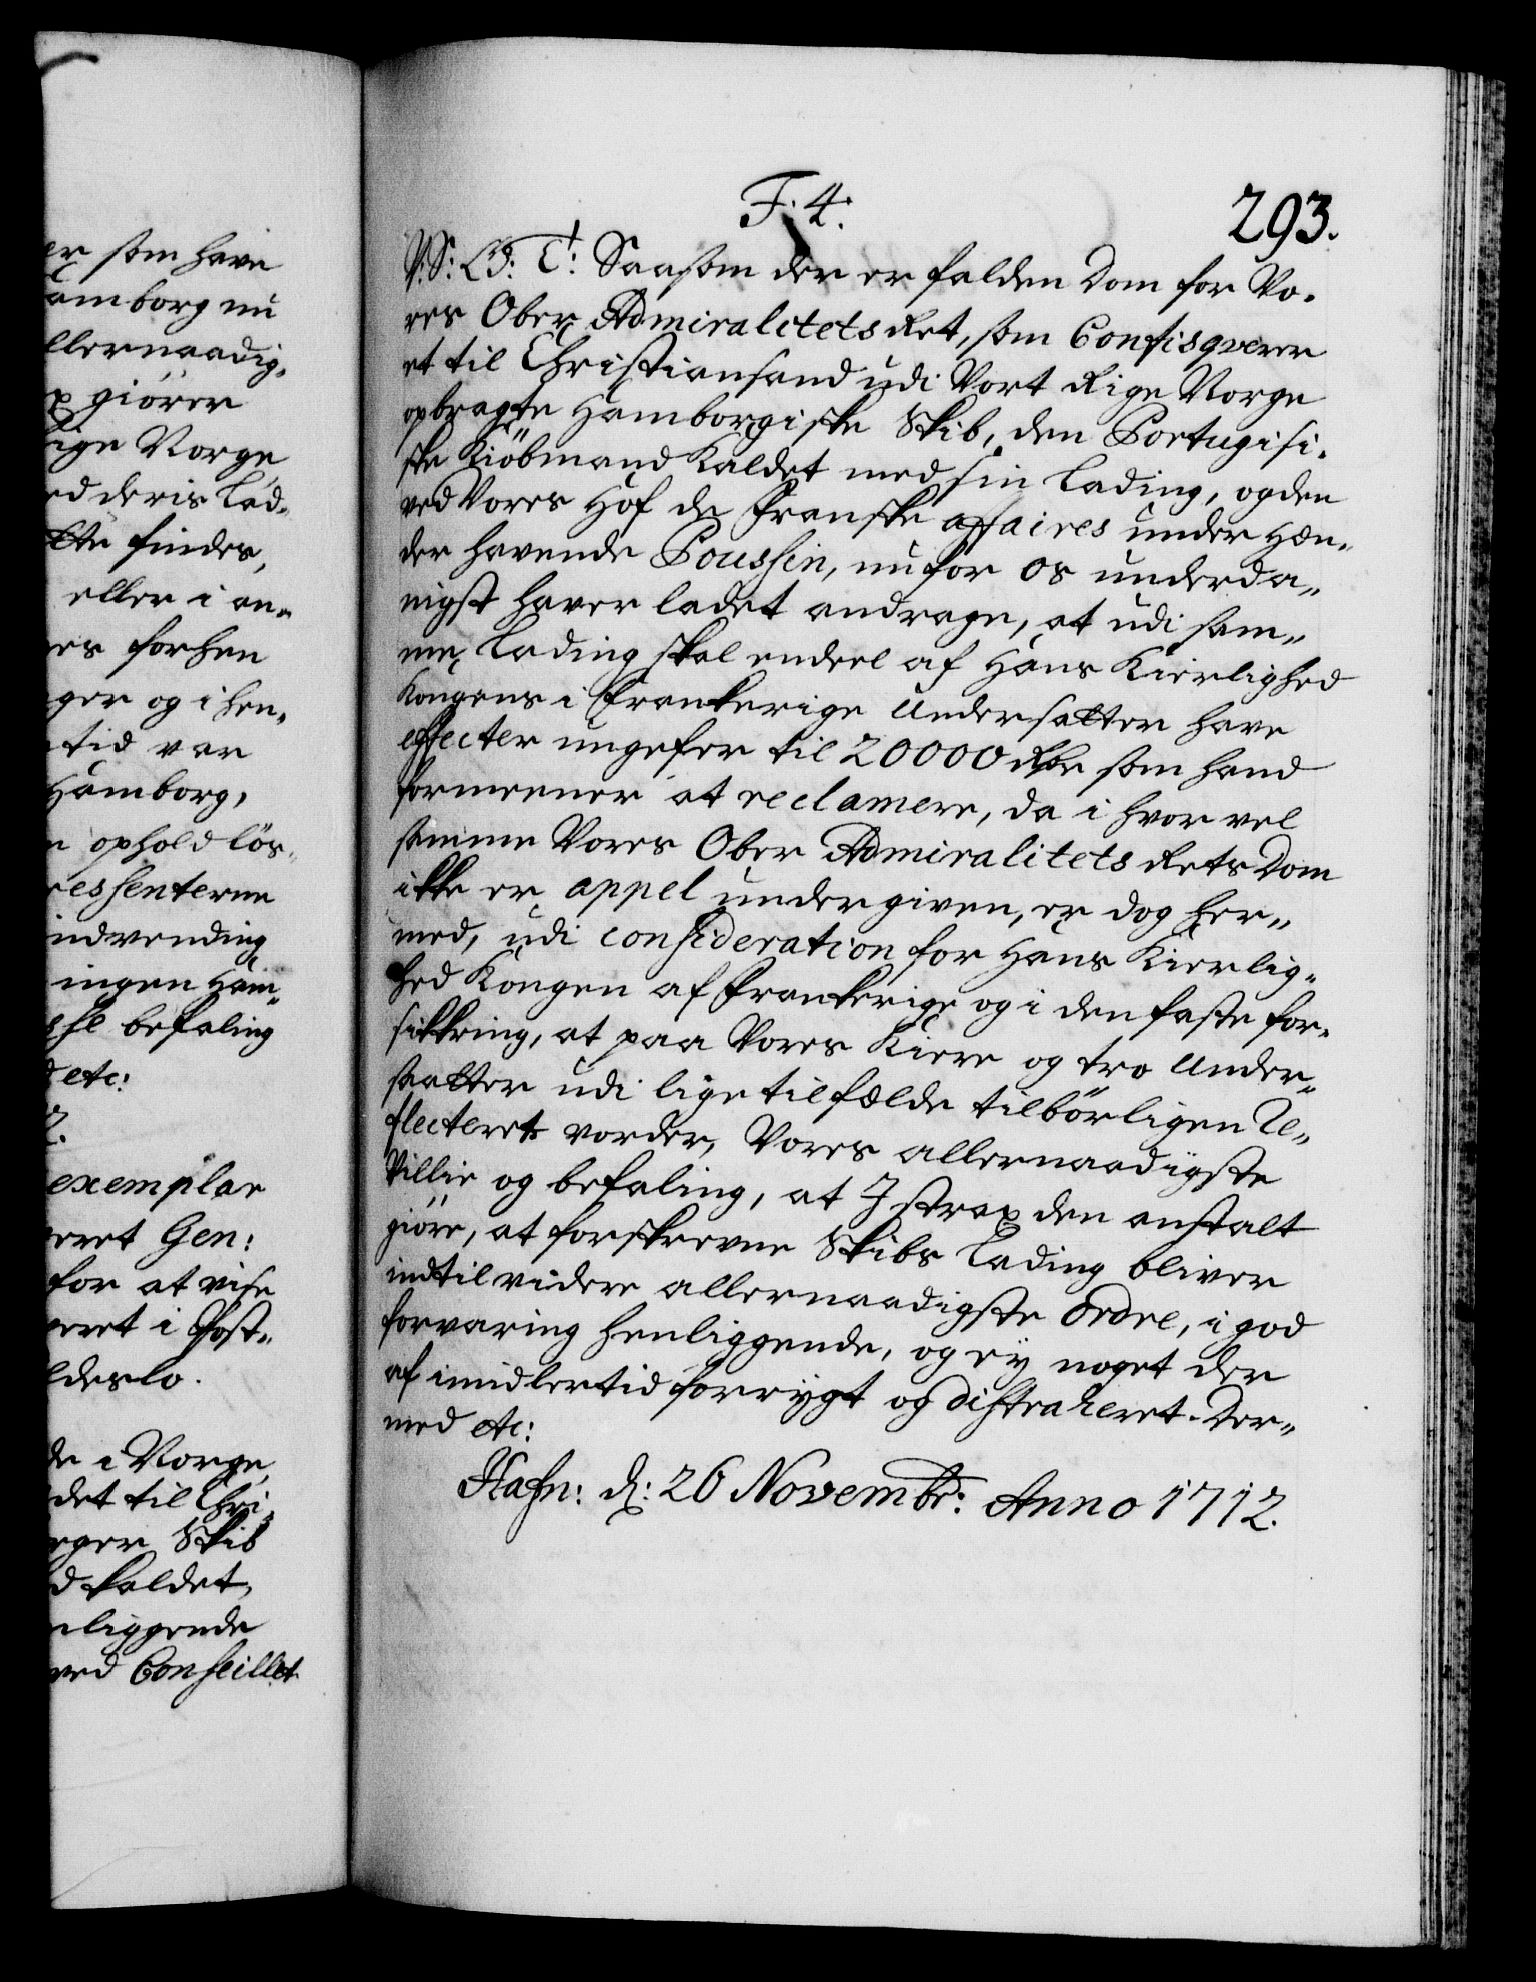 er som have
amborg nu
llernaadig¬
giörer
ige Norge
ed deris Lad¬
findes,
eller i an¬
res forhen
ger og i hen¬
tid var
Hamborg,
ophold lös¬
ressenterne
indvending
ingen Ham¬
befaling
etc:
2.
exemplar
eret Gen:
for at vise
eret i Host¬
ldeslo.
de i Norge
det til Chri¬
rger Skib
d kaldet,
liggende
ved Conseillet
F. 4.
293.
V: S: G: T: Saasom der er falden Dom for Vo¬
res Ober Admiralitets Ret, som Confisqverer
et til Christiansand udi Vort Rige Norge
opbragte Hamborgiske Skib, den Portugisi¬
ske Kiöbmand Kaldet med sin Lading, og den
ved Vores Hof de Franske affaires under Hæn¬
der havende Poussin, nu for os underda¬
nigst haver ladet andrage, at udi sam¬
me Lading skal endeel af Hans Kierlighed
Kongens i Frankerige Undersatter have
effecter ungefer til 20000 Rdr som hand
formeener at reclamere, da i hvor vel
samme Vores Ober Admiralitets Rets Dom
ikke er appel undergiven, er dog her¬
med, udi consideration for Hans Kierlig¬
hed Kongen af Frankerige og i den faste for¬
sikkring, at paa Vores Kiere og tro Under¬
saatter udi lige tilfælde tilbörligen re¬
flecteret vorder, Vores allernaadigste
Villie og befaling, at I strax den anstalt
giöre, at forskrevne Skibs Lading bliver
indtil videre allernaadigste Ordre, i god
forvaring henliggende, og ey noget der
af imidlertid forrygt og distraheret. Der¬
med etc:
Hafn: d: 26 Novembr: Anno 1712.